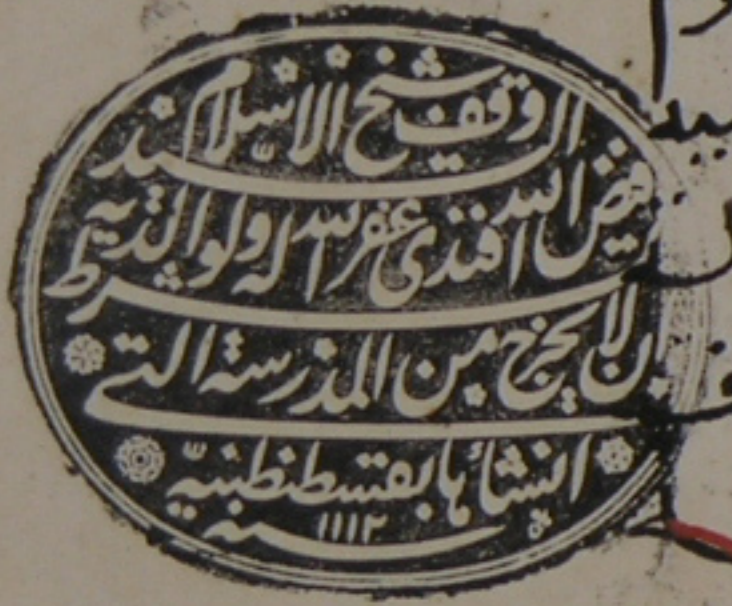 وقف شيخ الاسلام السيد
فيض الله افندى غفر الله له ولوالديه بشرط
ان لا يخرج من المدرسة التى
انشأها بقسطنطنيّه
سنه ١١١٢